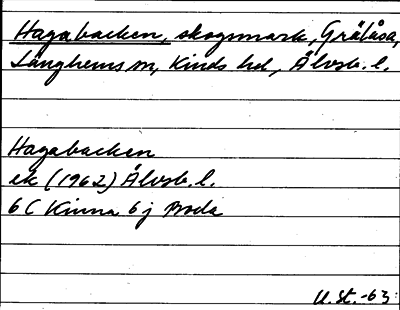 Hagabacken, skogsmark, Gråtåsa,
Länghems sn, Kinds hd, Älvsb. l.
Hagabacken
ek (1962) Älvsb. l.
6 C Kinna 6 j Broda
U. St. -63